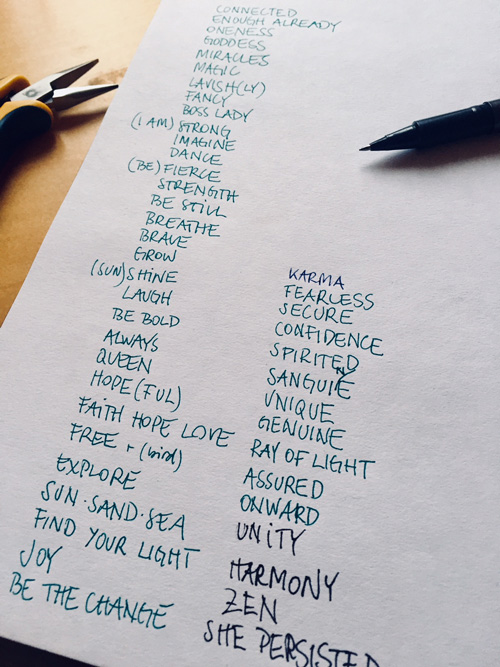 CONNECTED
ENOUGH ALREADY
ONENESS
GODDESS
MIRACLES
MAGIC
LAVISH(LY)
FANCY
BOSS LADY
(I AM) STRONG
IMAGINE
DANCE
(BE) FIERCE
STRENGTH
BE STILL
BREATHE
BRAVE
GROW
(SUN) SHINE
LAUGH
BE BOLD
ALWAYS
QUEEN
HOPE (FUL)
FAITH HOPE LOVE
FREE + (bird)
EXPLORE
SUN · SAND · SEA
FIND YOUR LIGHT
JOY
BE THE CHANGE
KARMA
FEARLESS
SECURE
CONFIDENCE
SPIRITED
SANGUINE
UNIQUE
GENUINE
RAY OF LIGHT
ASSURED
ONWARD
UNITY
HARMONY
ZEN
SHE PERSISTED